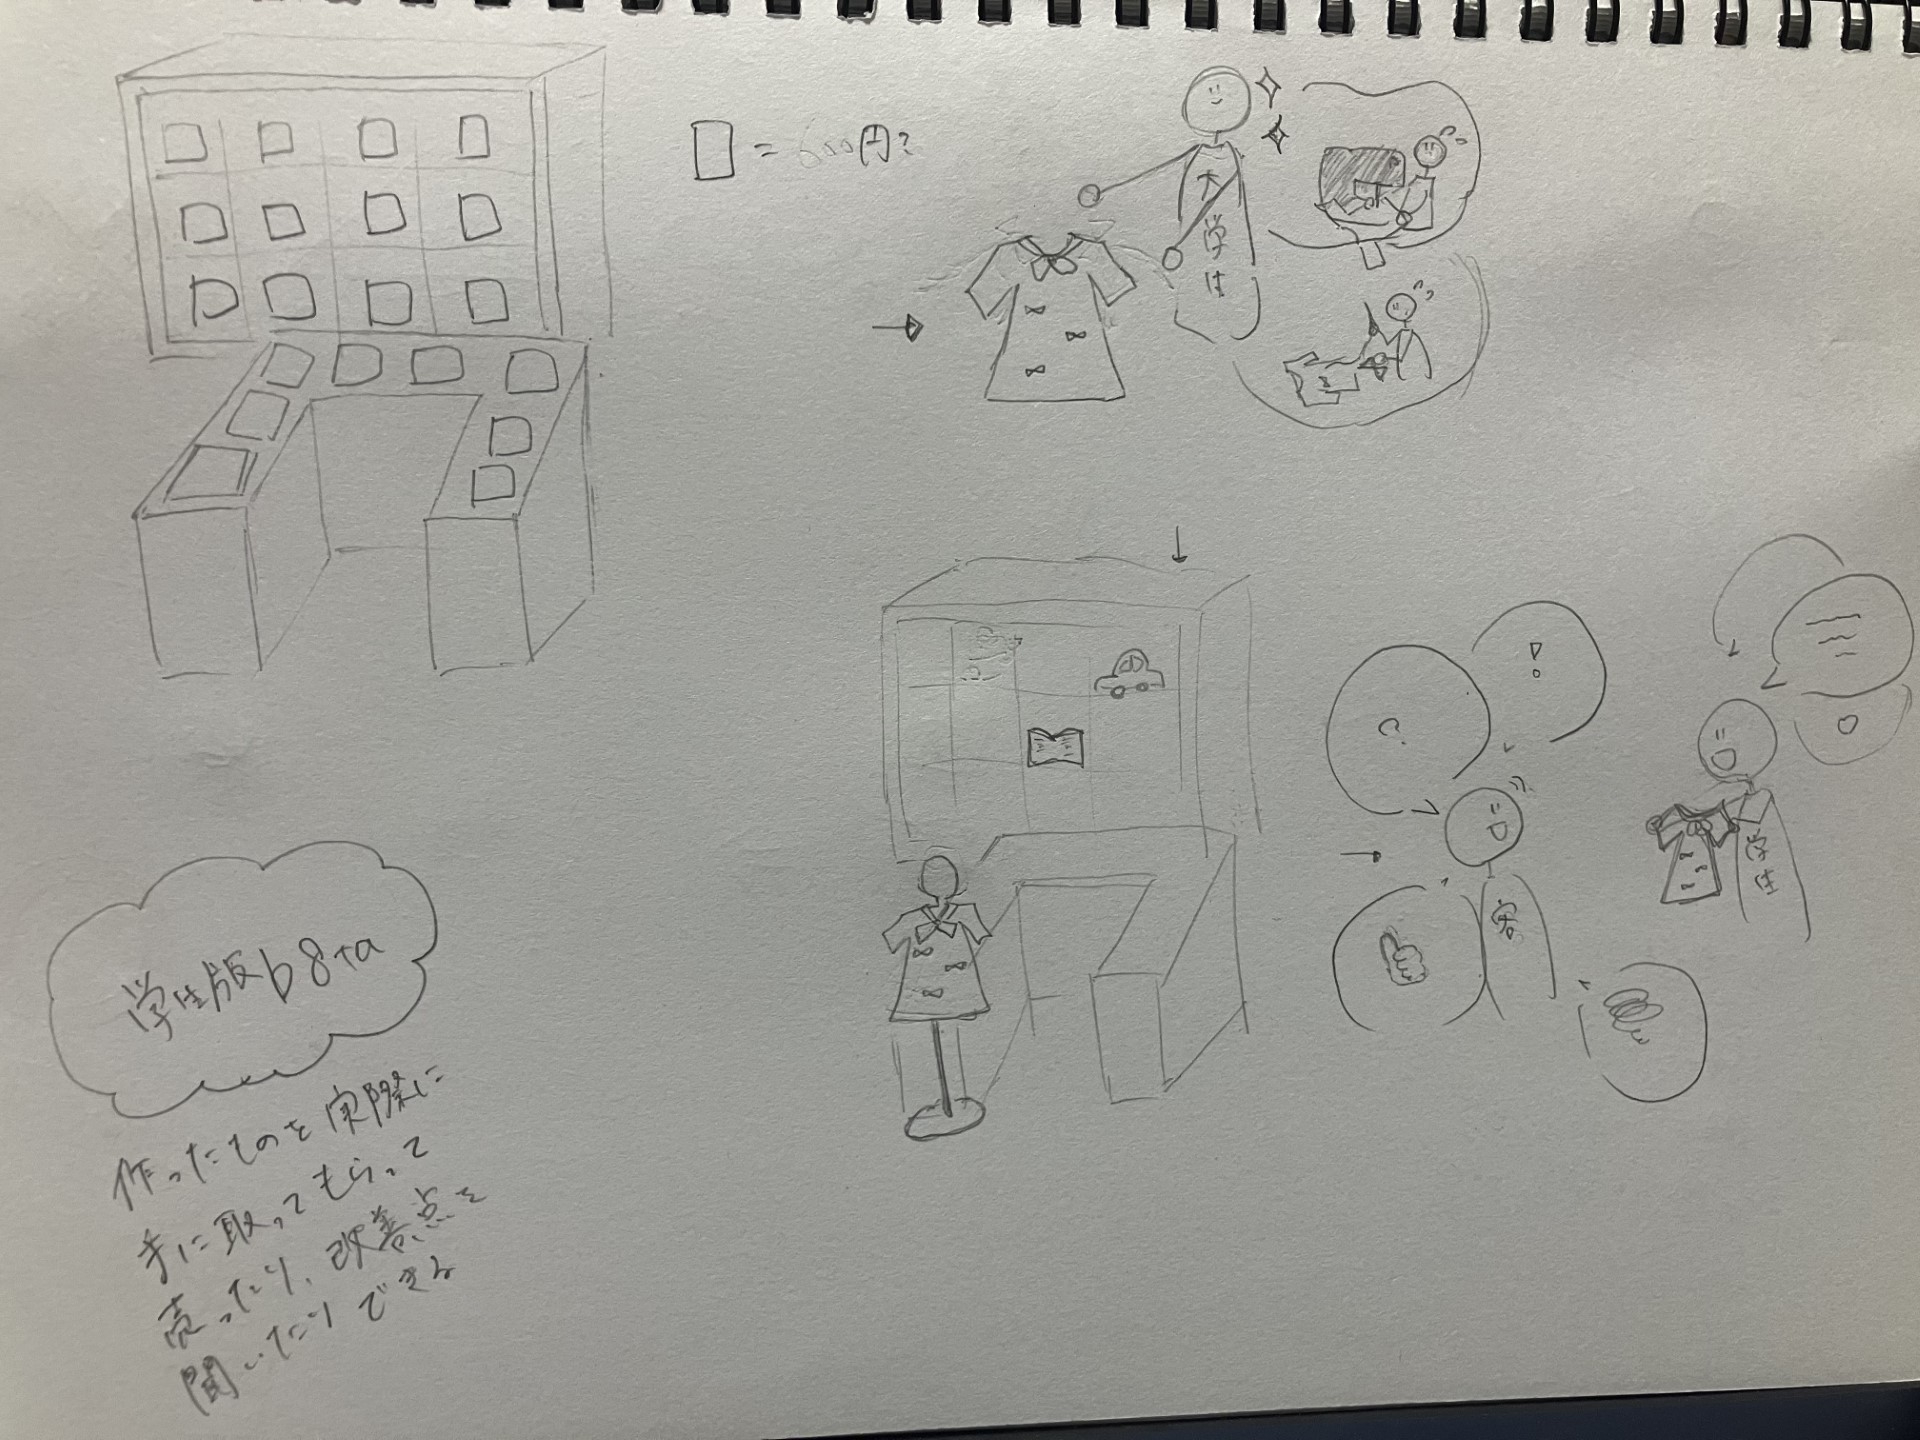 = 600円?
大学生
学生版b8ta
作ったものを実際に
手に取ってもらって
売ったり、改善点を
聞いたりできる
?
!
客
学生